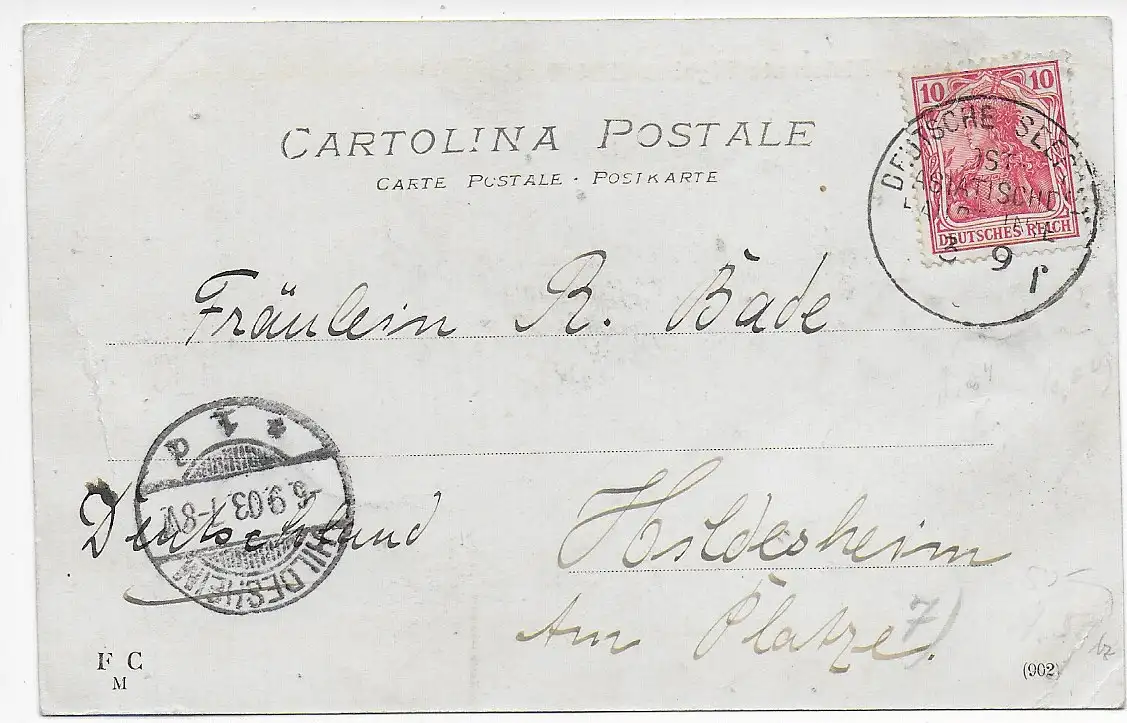 CARTOLINA POSTALE
CARTE POSTALE · POSTKARTE
10 10
DEUTSCHES REICH
DEUTSCHE
OST-
ASIATISCHE
9
Fräulein R. Bade
* 1 d
5.9.03.7-8V.
HILDESHEIM
Deutschland
Hildesheim
Am Platze 7)
F C
M
(902)